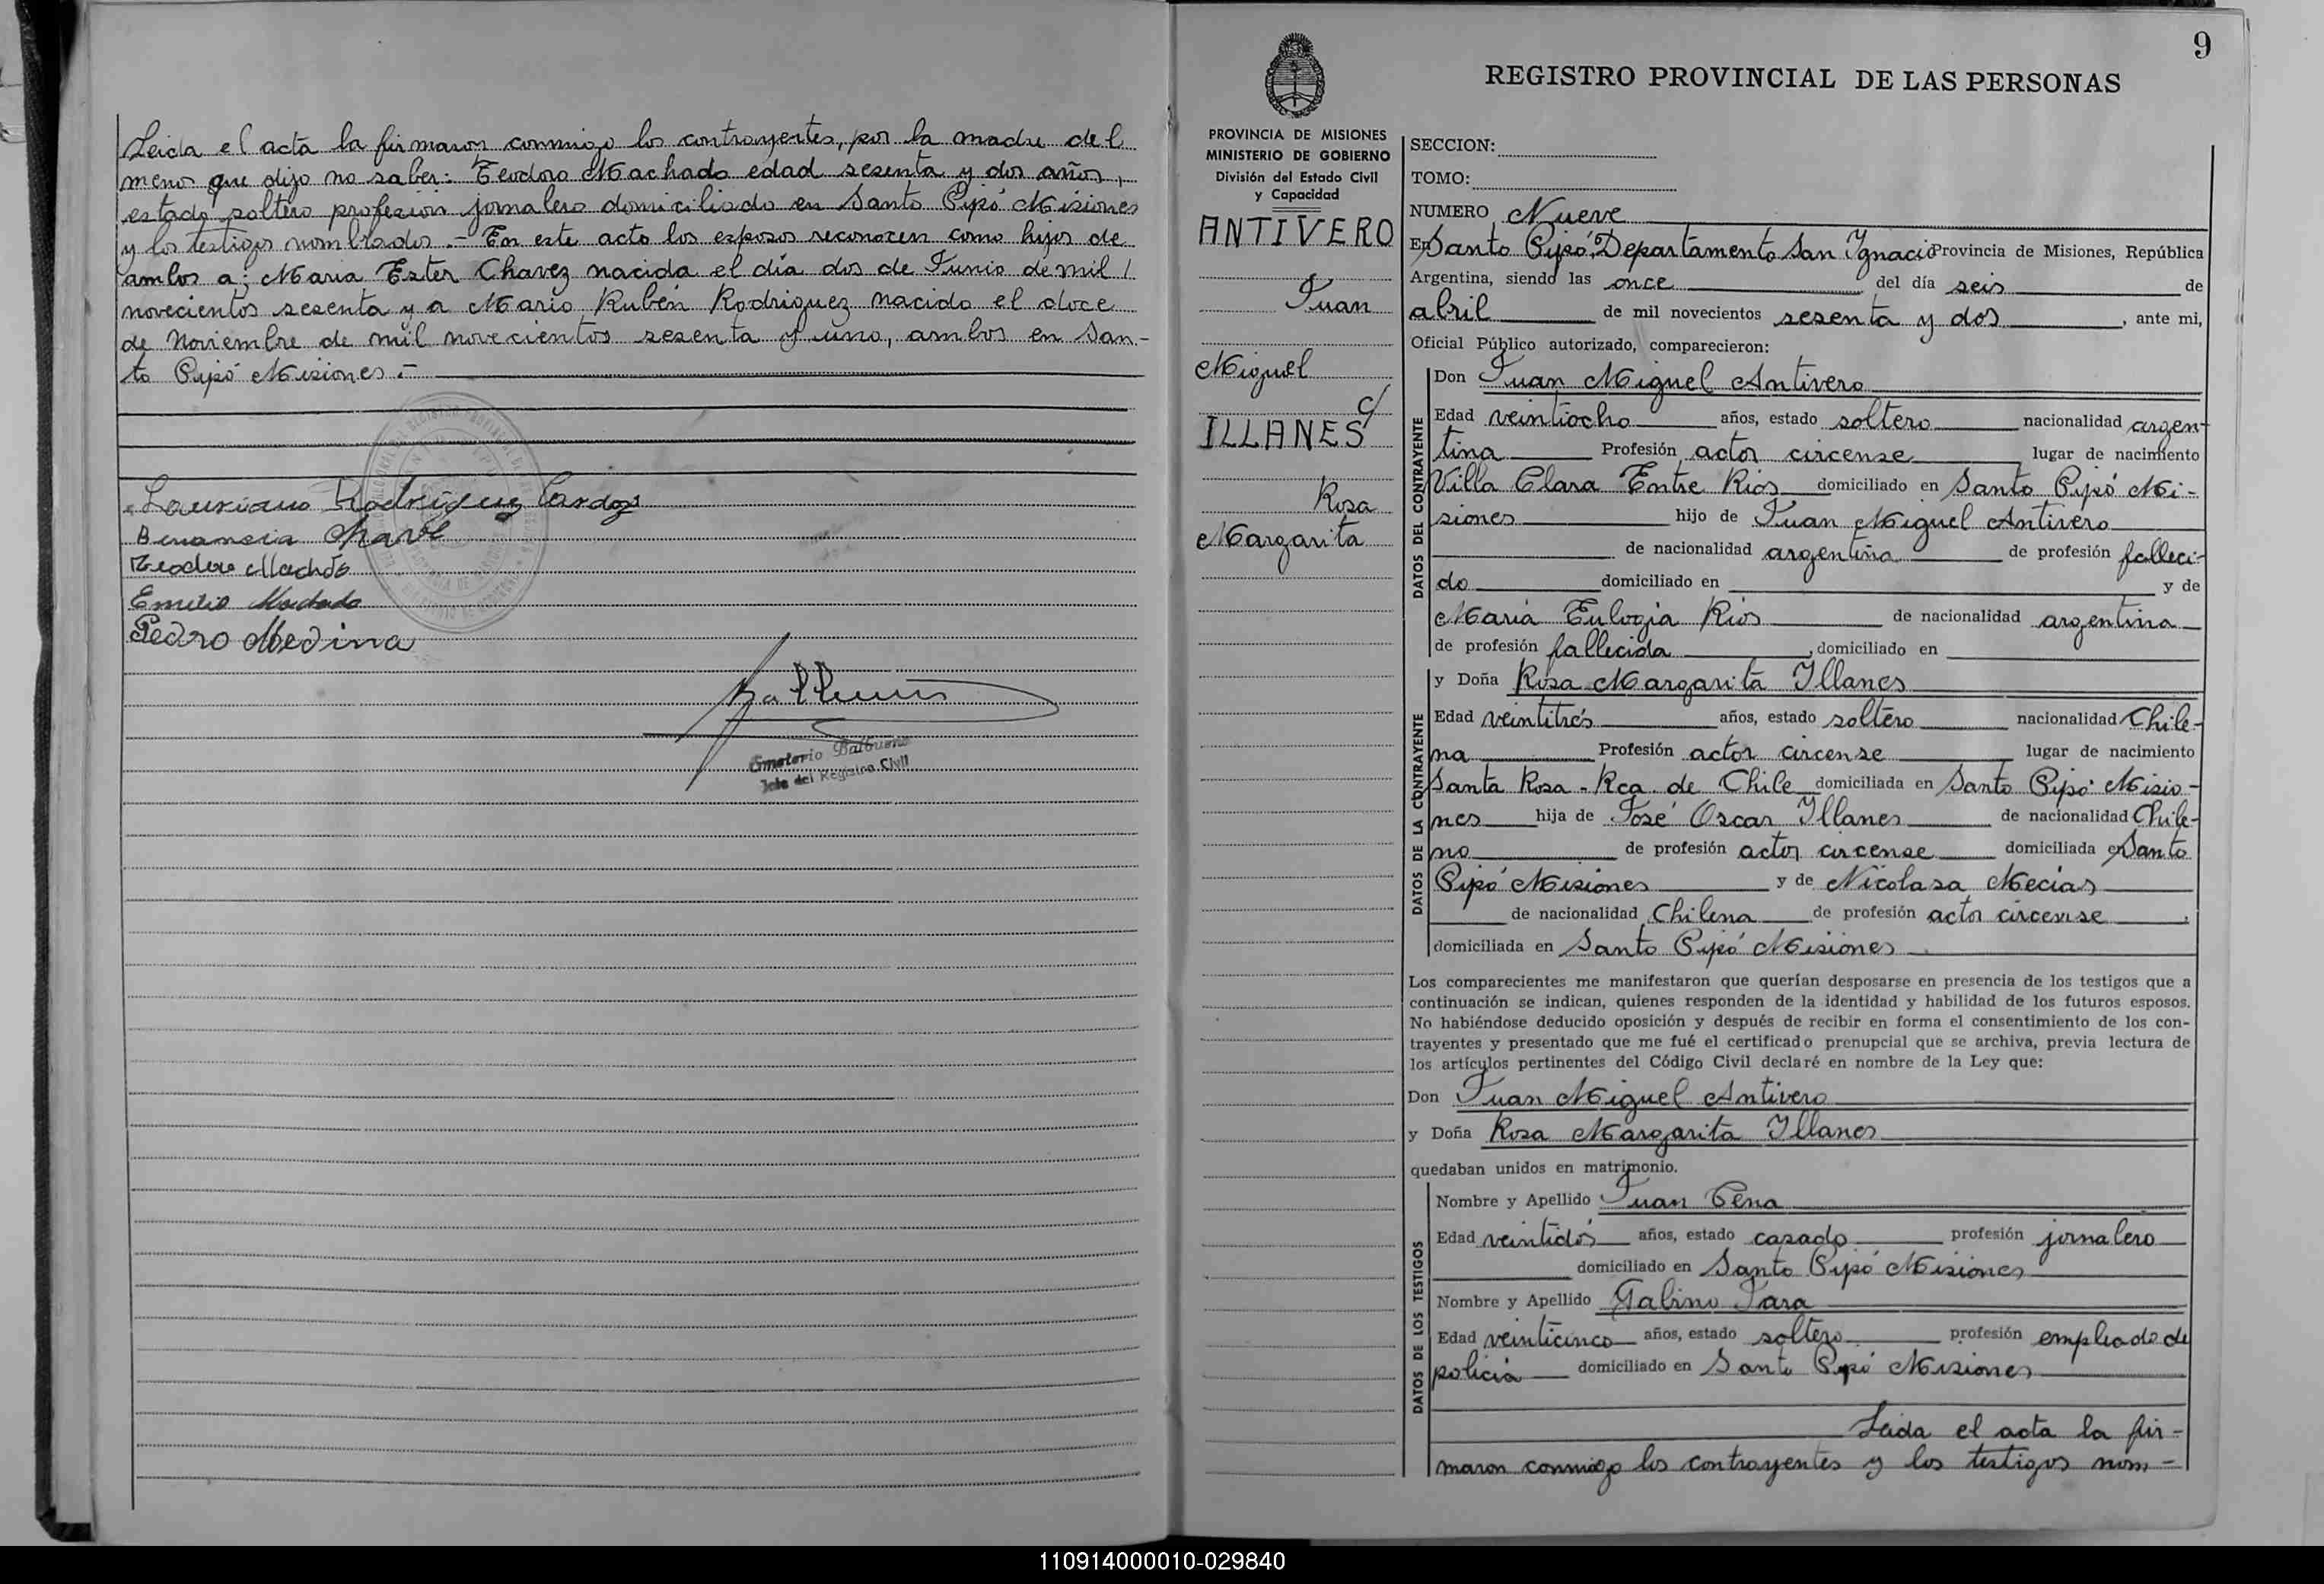 Leida el acta la firmaron conmigo los contrayentes, por la madre del
menor que dijo no saber: Teodoro Machado edad sesenta y dos años,
estado soltero profesion jornalero domiciliado en Santo Pipó Misiones
y los testigos nombrados.- En este acto los esposos reconocen como hijos de
ambos a: Maria Ester Chavez nacida el día dos de Junio de mil
novecientos sesenta y a Mario Rubén Rodriguez nacido el doce
de Noviembre de mil novecientos sesenta y uno, ambos en San-
to Pipó Misiones.-
Lauriano Rodriguez Cardozo
Benancia Chave
Teodoro Machado
Emilio Machado
Pedro Medina
Balbuena
Emeterio Balbuena
Jefe del Registro Civil
9
REGISTRO PROVINCIAL DE LAS PERSONAS
PROVINCIA DE MISIONES
MINISTERIO DE GOBIERNO
División del Estado Civil
y Capacidad
ANTIVERO
Juan
Miguel
c/
ILLANES
Rosa
Margarita
SECCION:
TOMO:
NUMERO Nueve
En Santo Pipó, Departamento San Ignacio Provincia de Misiones, República
Argentina, siendo las once del día seis de
abril de mil novecientos sesenta y dos, ante mi,
Oficial Público autorizado, comparecieron:
DATOS DEL CONTRAYENTE
Don Juan Miguel Antivero
Edad veintiocho años, estado soltero nacionalidad argen-
tina Profesión actor circense lugar de nacimiento
Villa Clara Entre Rios domiciliado en Santo Pipó Mi-
siones hijo de Juan Miguel Antivero
de nacionalidad argentina de profesión falleci-
do domiciliado en y de
Maria Eulogia Rios de nacionalidad argentina
de profesión fallecida, domiciliado en
DATOS DE LA CONTRAYENTE
y Doña Rosa Margarita Illanes
Edad veintitrés años, estado soltero nacionalidad Chile-
na Profesión actor circense lugar de nacimiento
Santa Rosa - Rca. de Chile domiciliada en Santo Pipó Misio-
nes hija de José Oscar Illanes de nacionalidad Chile-
no de profesión actor circense domiciliada en Santo
Pipó Misiones y de Nicolasa Mecias
de nacionalidad Chilena de profesión actor circense,
domiciliada en Santo Pipó Misiones
Los comparecientes me manifestaron que querían desposarse en presencia de los testigos que a
continuación se indican, quienes responden de la identidad y habilidad de los futuros esposos.
No habiéndose deducido oposición y después de recibir en forma el consentimiento de los con-
trayentes y presentado que me fué el certificado prenupcial que se archiva, previa lectura de
los artículos pertinentes del Código Civil declaré en nombre de la Ley que:
Don Juan Miguel Antivero
y Doña Rosa Margarita Illanes
quedaban unidos en matrimonio.
DATOS DE LOS TESTIGOS
Nombre y Apellido Juan Pena
Edad veintidós años, estado casado profesión jornalero
domiciliado en Santo Pipó Misiones
Nombre y Apellido Gabino Jara
Edad veinticinco años, estado soltero profesión empleado de
policia domiciliado en Santo Pipó Misiones
Leida el acta la fir-
maron conmigo los contrayentes y los testigos nom-
110914000010-029840